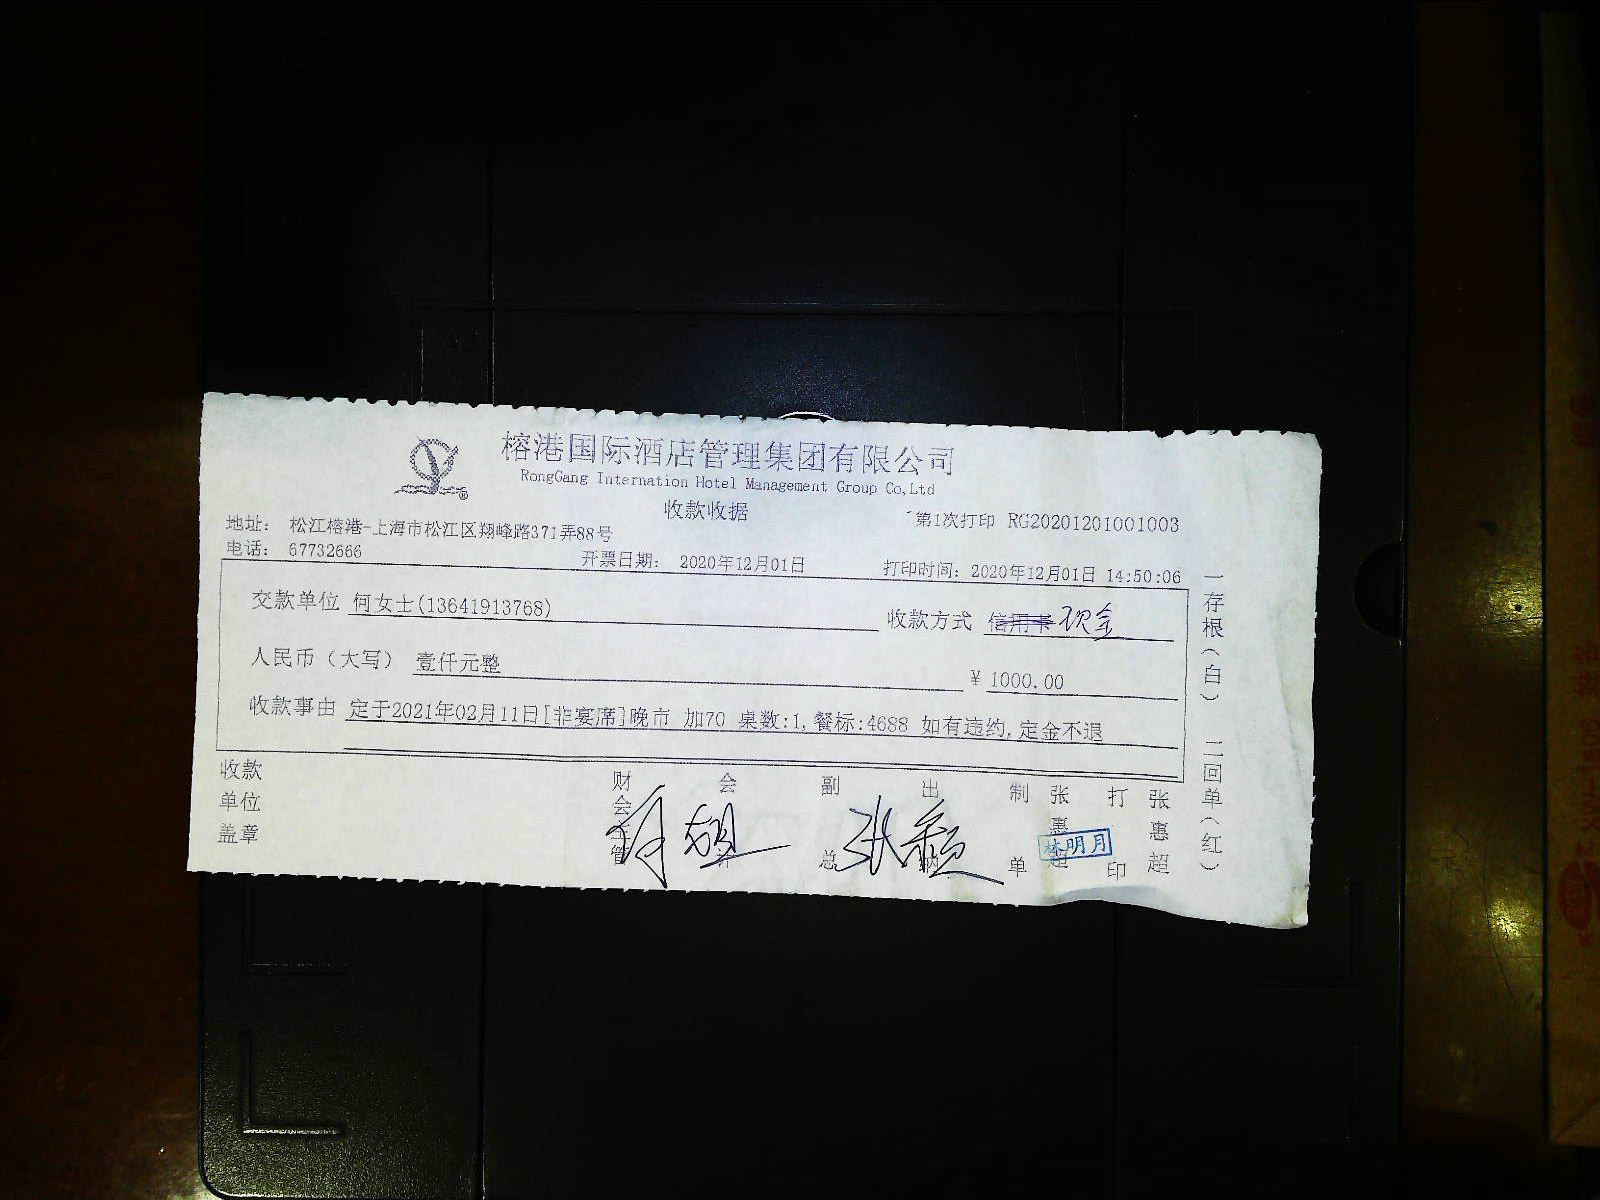 榕港国际酒店管理集团有限公司
RongGang Internation Hotel Management Group Co,Ltd
收款收据
第1次打印 RG20201201001003
地址： 松江榕港-上海市松江区翔峰路371弄88号
电话： 67732666
开票日期： 2020年12月01日
打印时间：2020年12月01日 14:50:06
交款单位 何女士(13641913768)
收款方式 信用卡 现金
人民币（大写） 壹仟元整
￥ 1000.00
收款事由 定于2021年02月11日[非宴席]晚市 加70 桌数:1,餐标:4688 如有违约,定金不退
收款单位盖章
财会主管
会计
副总
出纳
制单 张惠超
林明月
打印 张惠超
一存根（白） 二回单（红）